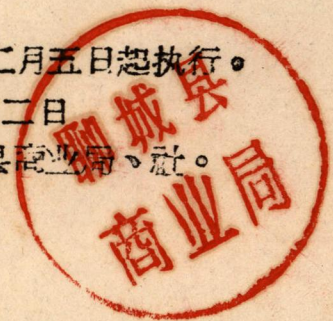 二月五日起执行。
二日
县商业局、社。
聊城县
商业局